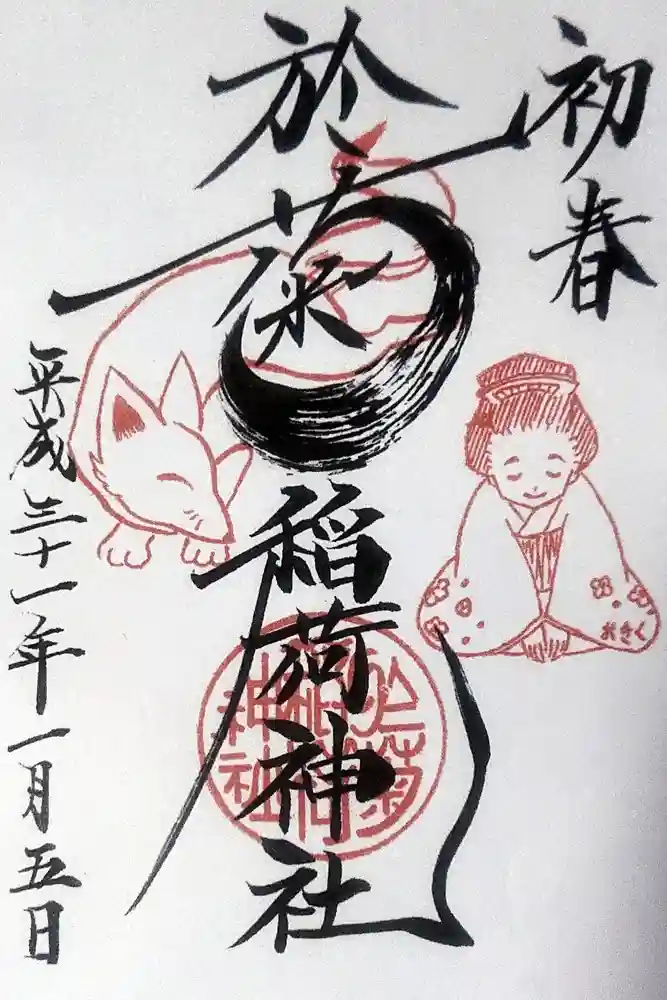 初春
於菊稲荷神社
平成三十一年一月五日
おきく
於菊
稲荷
神社